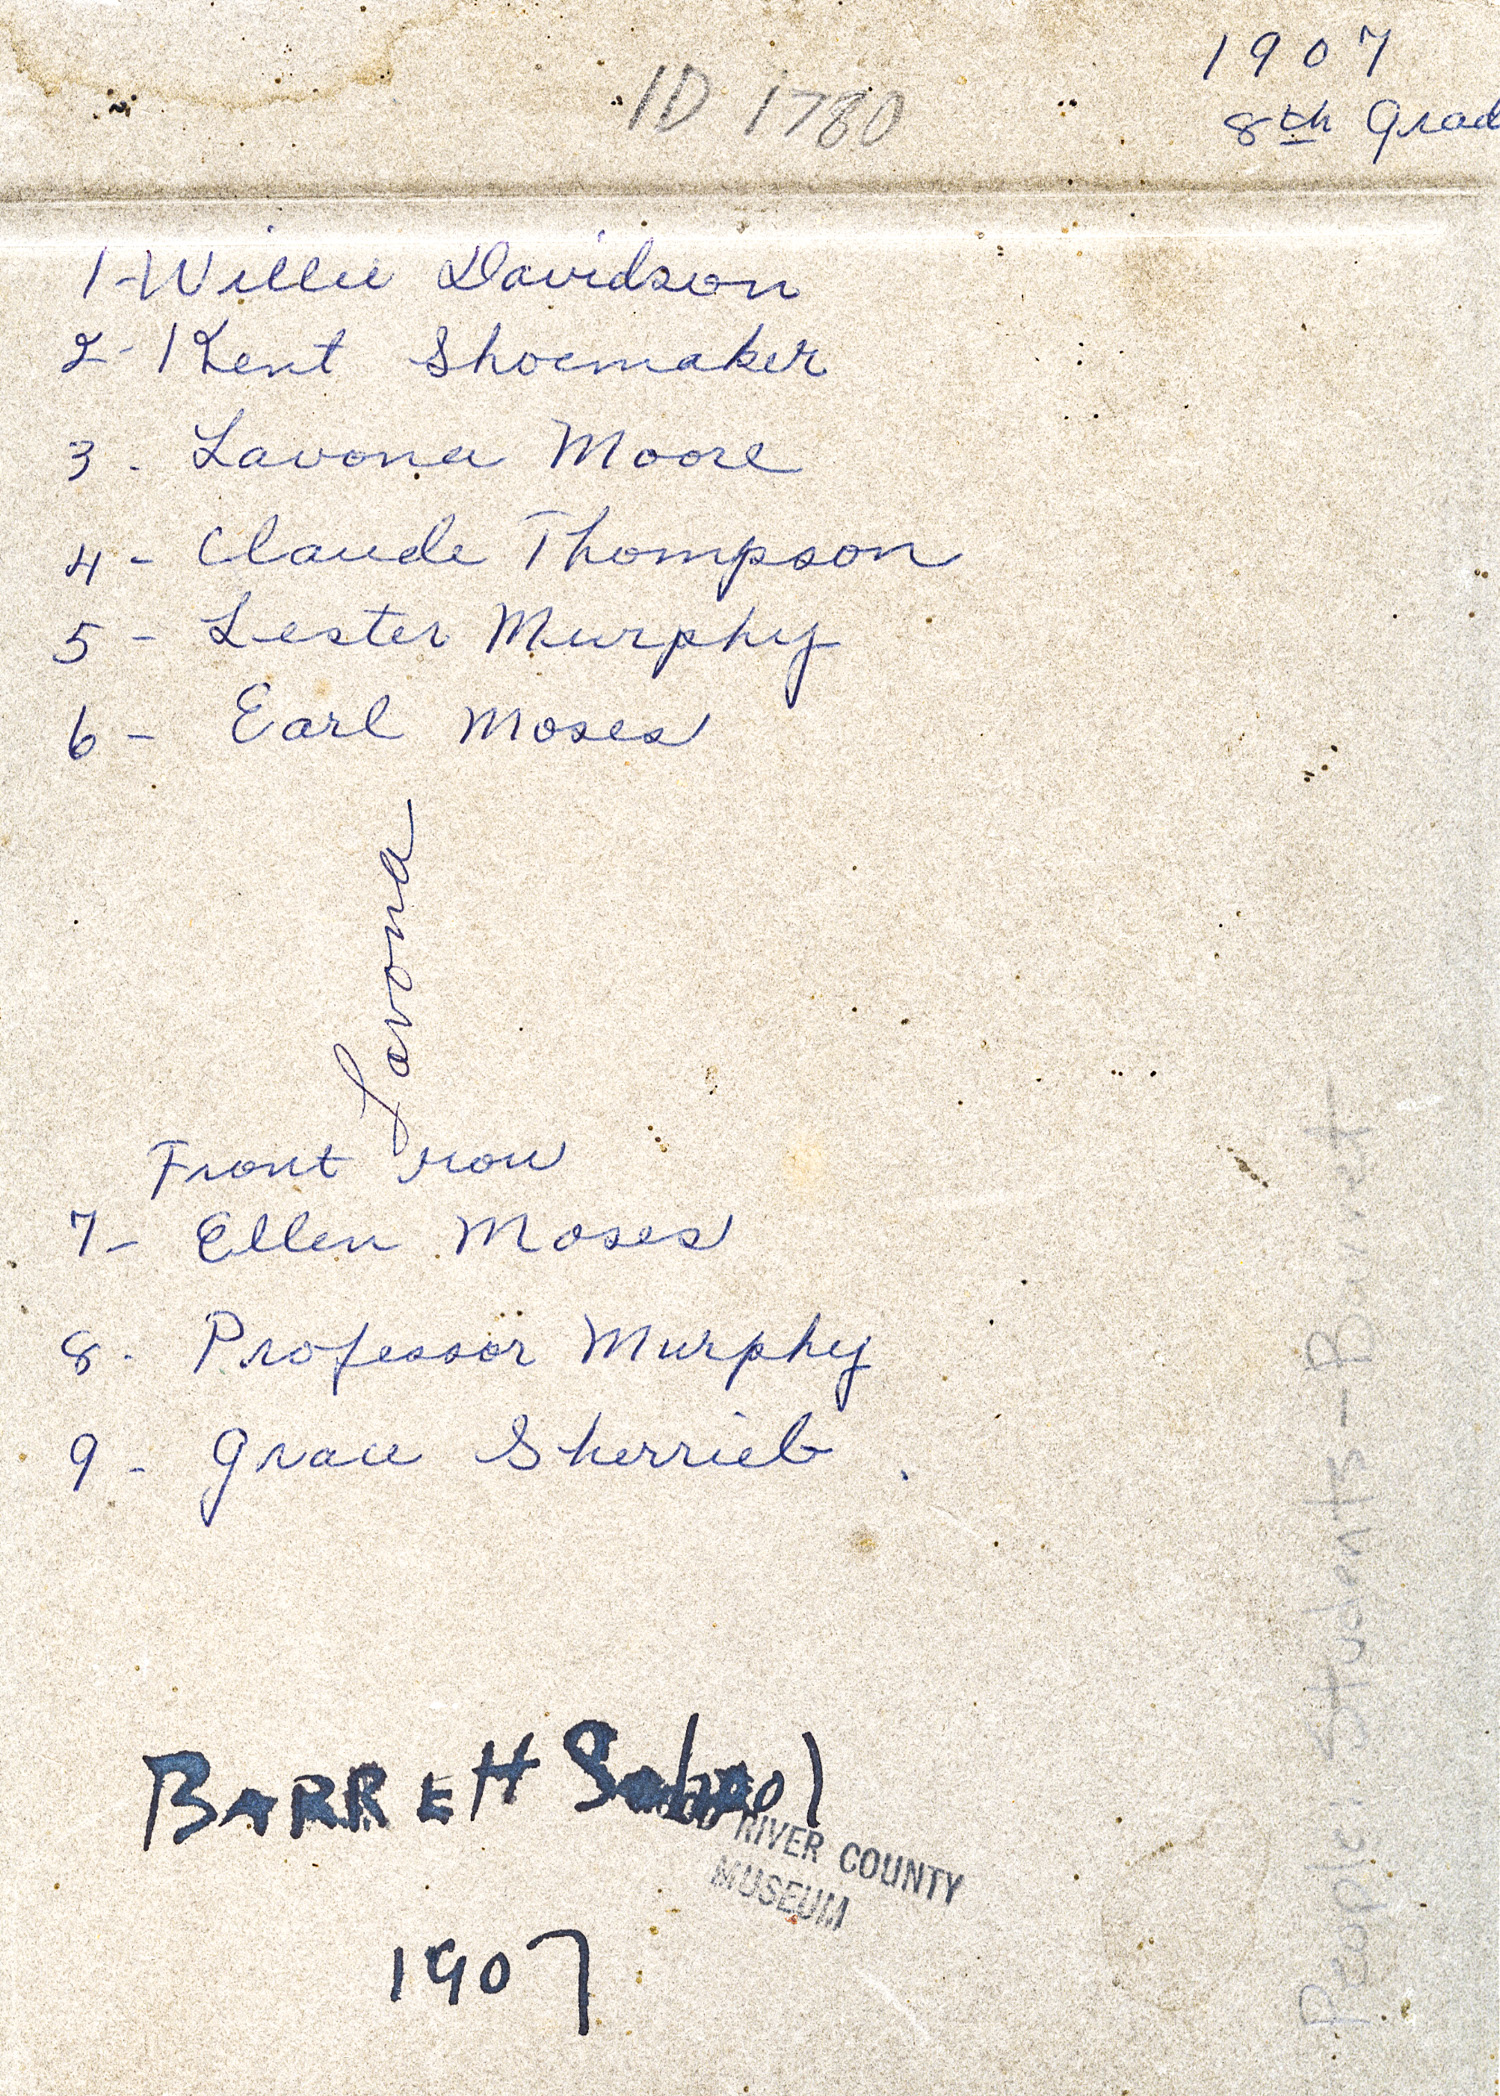 1907
ID 1780
8th Grad
1-Willie Davidson
2-Kent Shoemaker
3. Lavona Moore
4- Claude Thompson
5- Lester Murphy
6- Earl Moses
Lavona
Front row
7- Ellen Moses
8. Professor Murphy
9- Grace Sherrieb.
People: Students - Barrett
BARRETT School
RIVER COUNTY
MUSEUM
1907